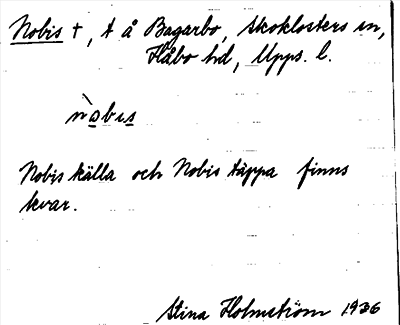 Nobis †, t å Bagarbo, Skoklosters sn,
Håbo hd, Upps. l.
nòbis
Nobis källa och Nobis täppa finns
kvar.
Stina Holmström 1936